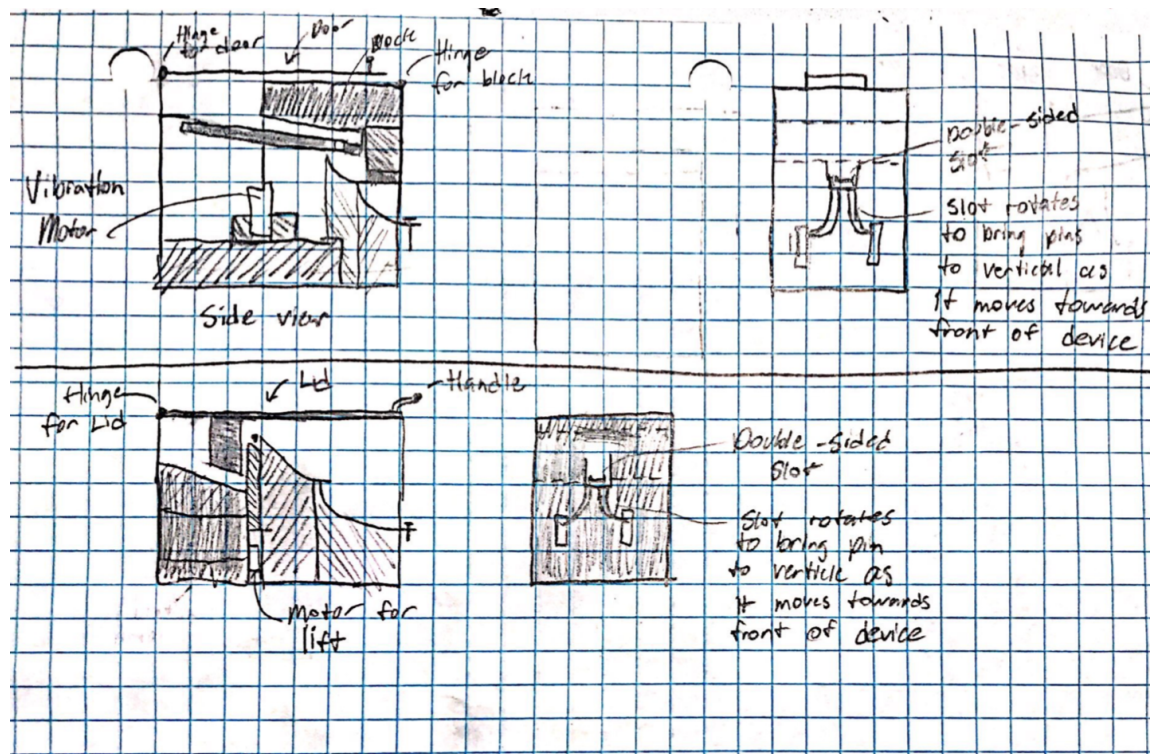 Hinge
to door
Door
Block
Hinge
for block
Vibration
Motor
Side view
Double-sided
Slot
Slot rotates
to bring pins
to vertical as
It moves towards
front of device
Hinge
for Lid
Lid
Handle
Motor for
lift
Double-sided
Slot
Slot rotates
to bring pin
to verticle as
It moves towards
front of device